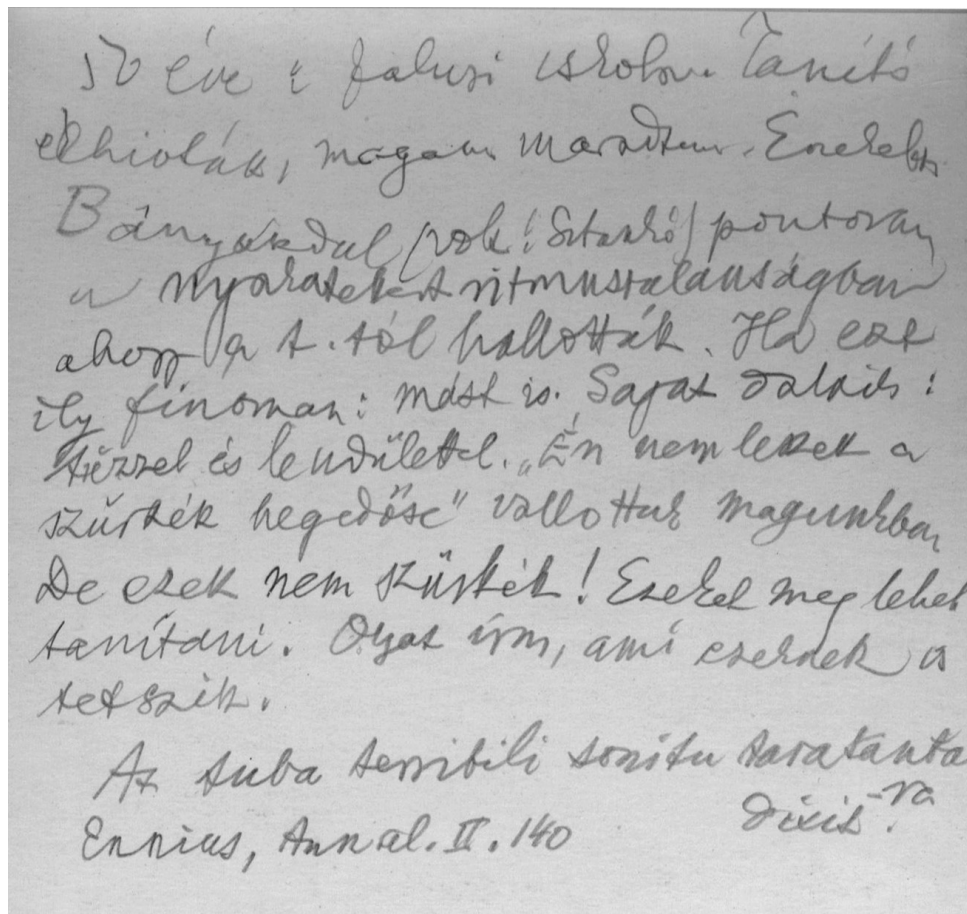 50 éve a falusi iskola. Tanító
elhivták, magam maradtam. Énekeltek
Bányászdal pontosan
a ritmustalanságban
ahogy a t.-tól hallották. Ha ezt
ily finoman: mást is. Saját dalaik:
tűzzel és lendülettel. „Én nem leszek a
szürkék hegedőse" vallottuk magunkban
De ezek nem szürkék! Ezeket meg lehet
tanítani. Olyat írni, ami ezeknek is
tetszik.
At tuba terribili sonitu taratanta
dixit.
Ennius, Annal. II. 140